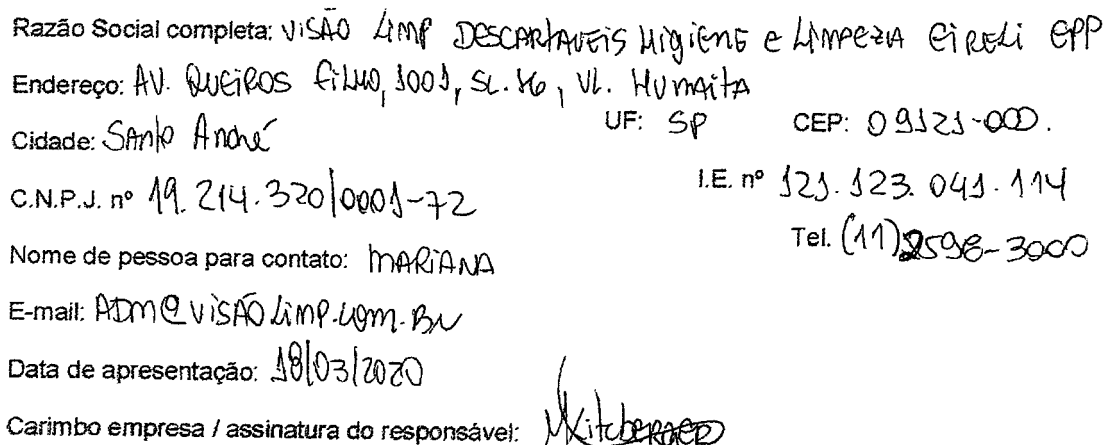 Razão Social completa: VISÃO LIMP DESCARTAVEIS HIGIENE e LIMPEZA EIRELI EPP
Endereço: AV. QUEIROS FILHO, 1001, SL. 16, VL. HUMAITA
Cidade: Santo André UF: SP CEP: 09121-000.
C.N.P.J. nº 19.214.320/0001-72 I.E. nº 121.123.041.114
Tel. (11) 2598-3000
Nome de pessoa para contato: MARIANA
E-mail: ADM@VISÃOLIMP.COM.BR
Data de apresentação: 18/03/2020
Carimbo empresa / assinatura do responsável: